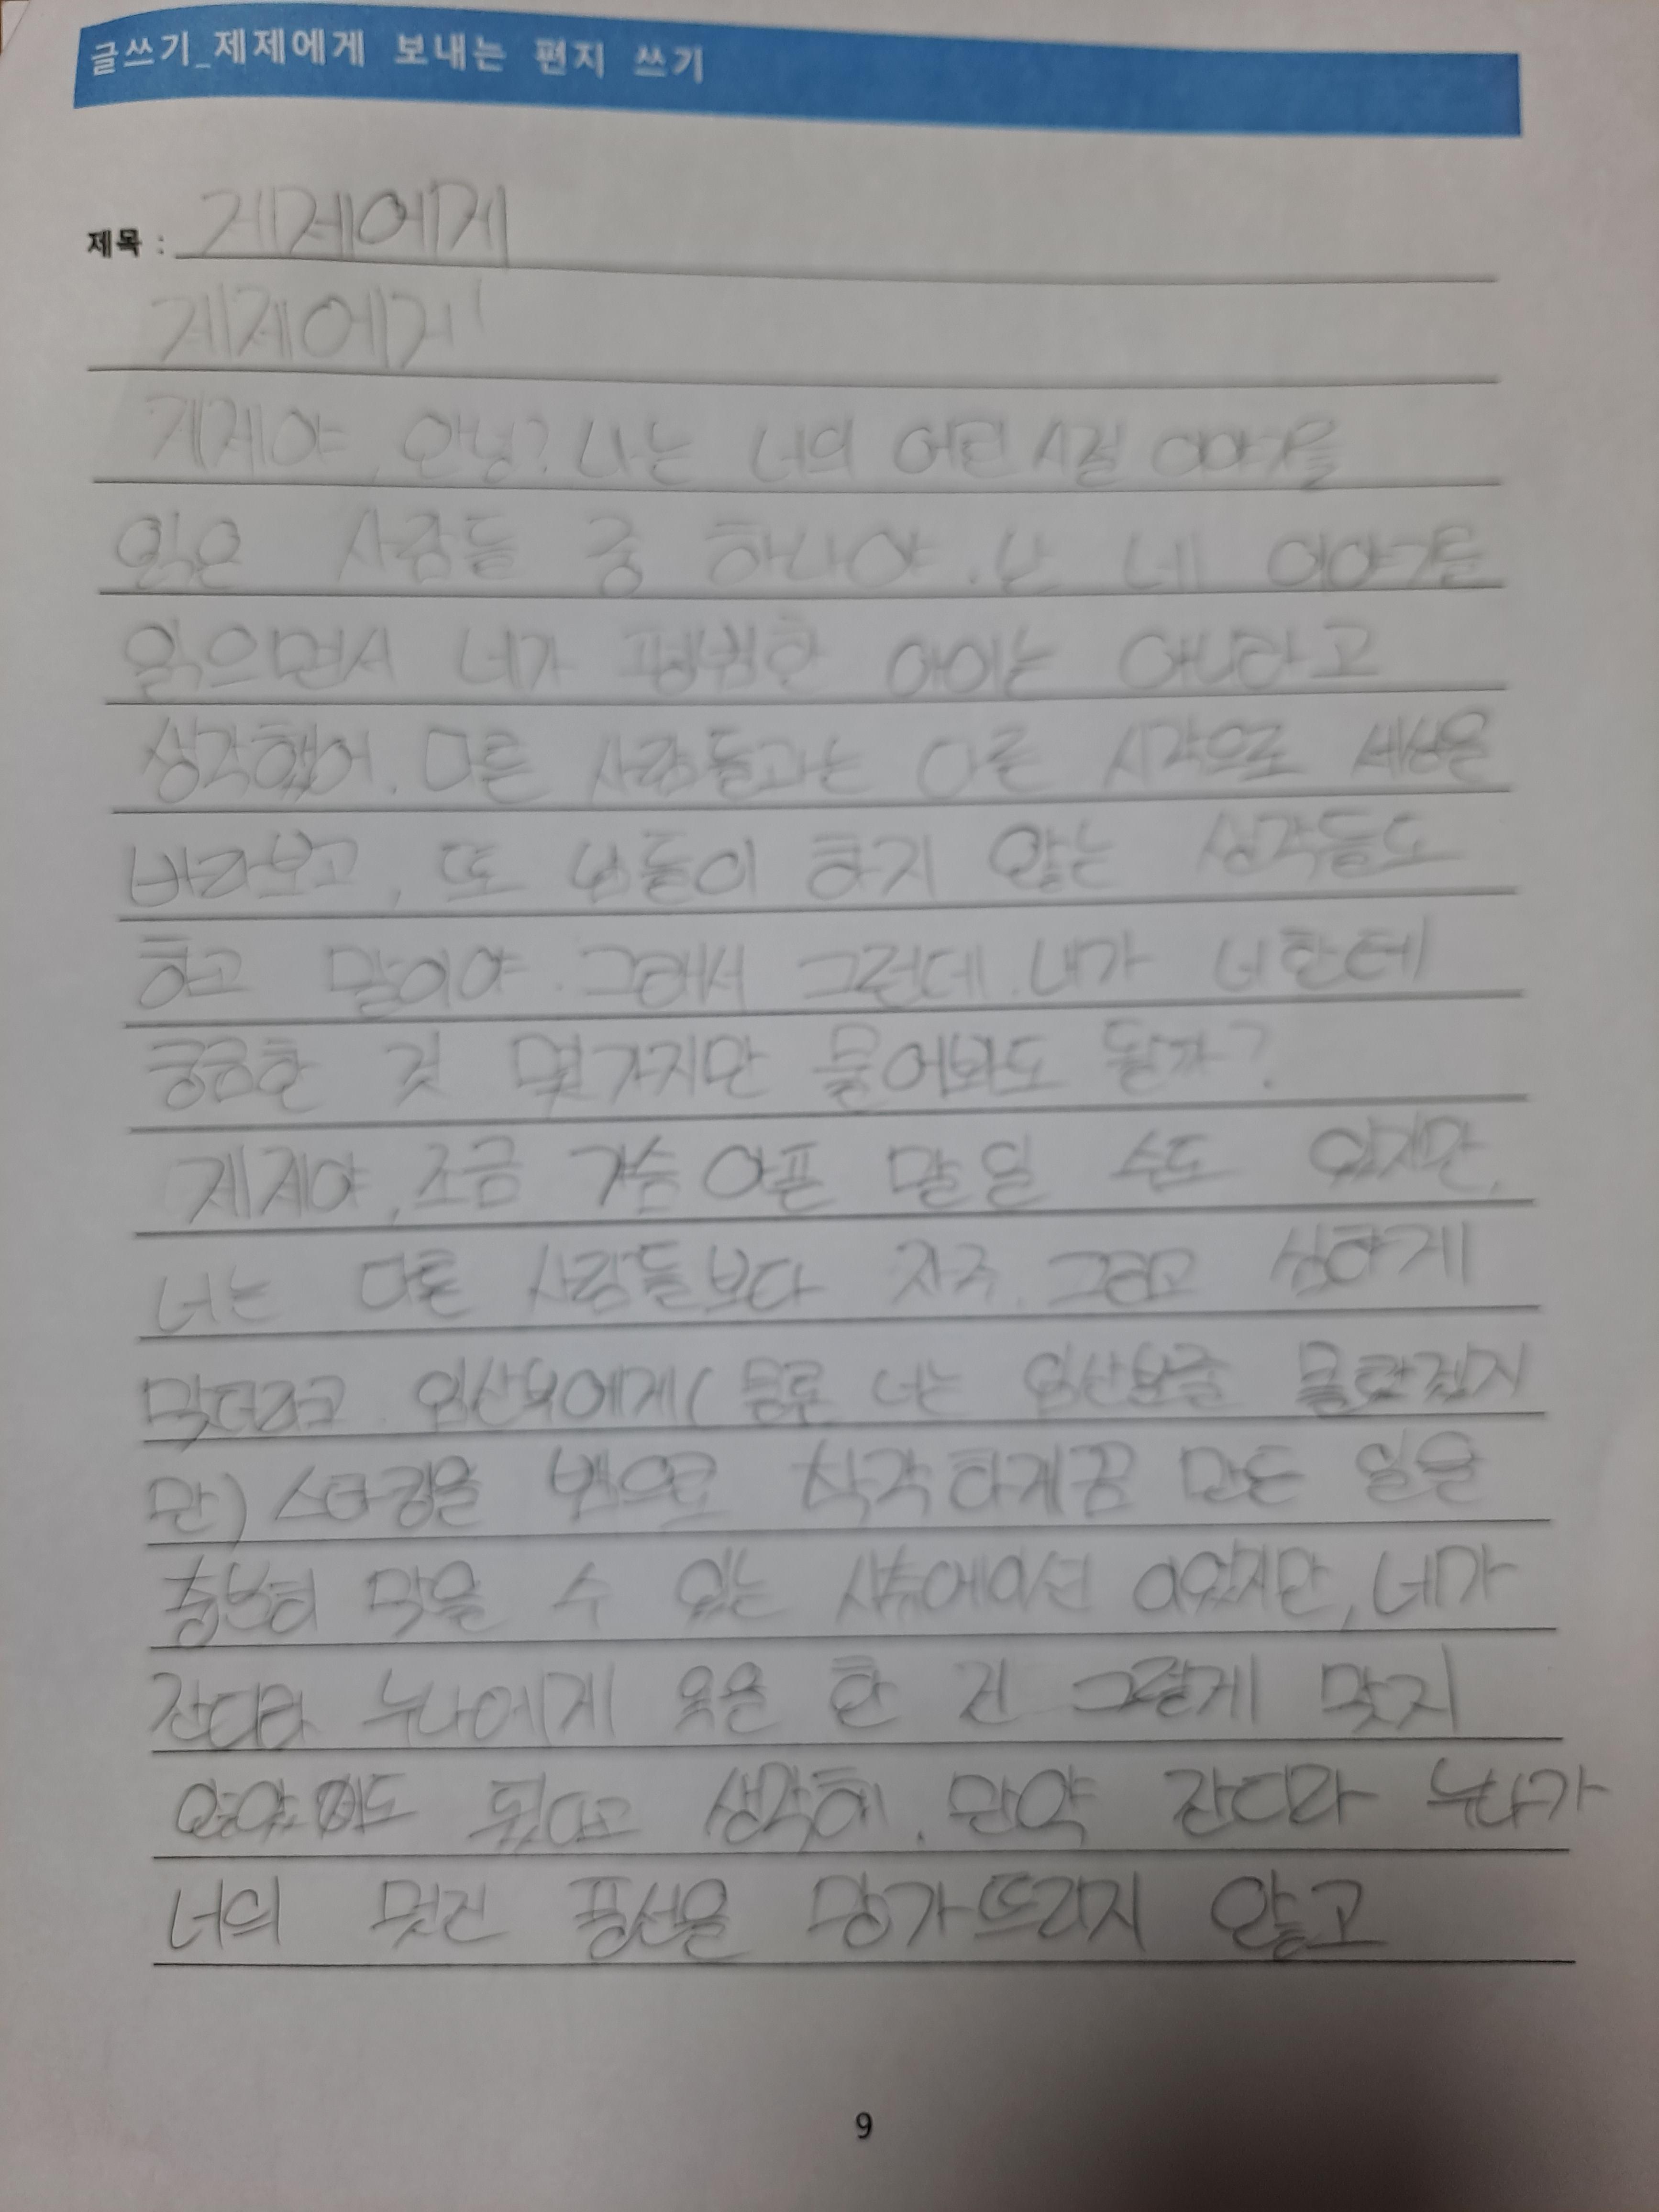 글쓰기_제제에게 보내는 편지 쓰기
제목 : 제제에게
제제에게
제제야, 안녕? 나는 너의 어린 시절 이야기를
읽은 사람들 중 하나야. 난 네 이야기를
읽으면서 네가 평범한 아이는 아니라고
생각했어. 다른 사람들과는 다른 시각으로 세상을
바라보고, 또 남들이 하지 않는 생각들도
하고 말이야. 그래서 그런데, 내가 너한테
궁금한 것 몇가지만 물어봐도 될까?
제제야, 조금 가슴 아픈 말일 수도 있지만,
너는 다른 사람들보다 자주, 그리고 심하게
맞더라고. 임산부에게( 물론 너는 임산부인줄 몰랐겠지
만) 스타킹을 뱀으로 착각하게끔 만든 일은
충분히 맞을 수 있는 시츄에이션이었지만, 네가
잔디라 누나에게 욕을 한 건 그렇게 맞지
않아도 됐다고 생각해. 만약 잔디라 누나가
너의 멋진 풍선을 망가뜨리지 않고
9